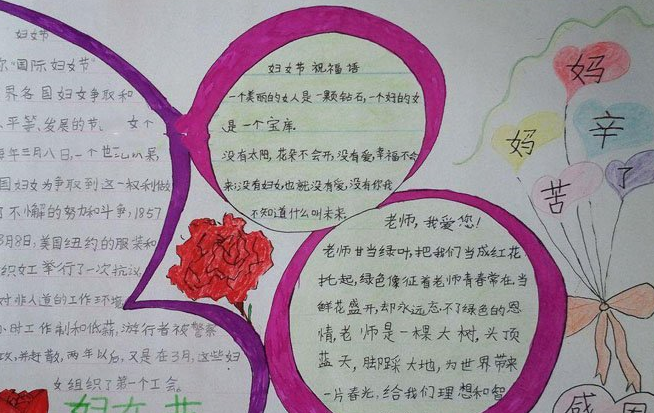 妇女节
"国际妇女节"
界各国妇女争取和
平等、发展的节
年三月八日,一个
国妇女为争取到这一权利做
了不懈的努力和斗争,1857
月8日,美国纽约的服装和
织女工举行了一次抗议
对非人道的工作环境
小时工作制和低薪,游行者被警察
攻,并赶散,两年以后,又是在3月,这些妇
女组织了第一个工会
妇女节
妇女节 祝福语
一个美丽的女人是一颗钻石,一个好的女
是一个宝库.
没有太阳,花朵不会开,没有爱,幸福不会
来,没有妇女,也就没有爱,没有你我
不知道什么叫未来.
老师,我爱您!
老师甘当绿叶,把我们当成红花
托起,绿色像征着老师青春常在,当
鲜花盛开,却永远忘不了绿色的恩
情,老师是一棵大树,头顶
蓝天,脚踩大地,为世界带来
一片春光,给我们理想和智
妈
妈
辛
苦
了
感恩